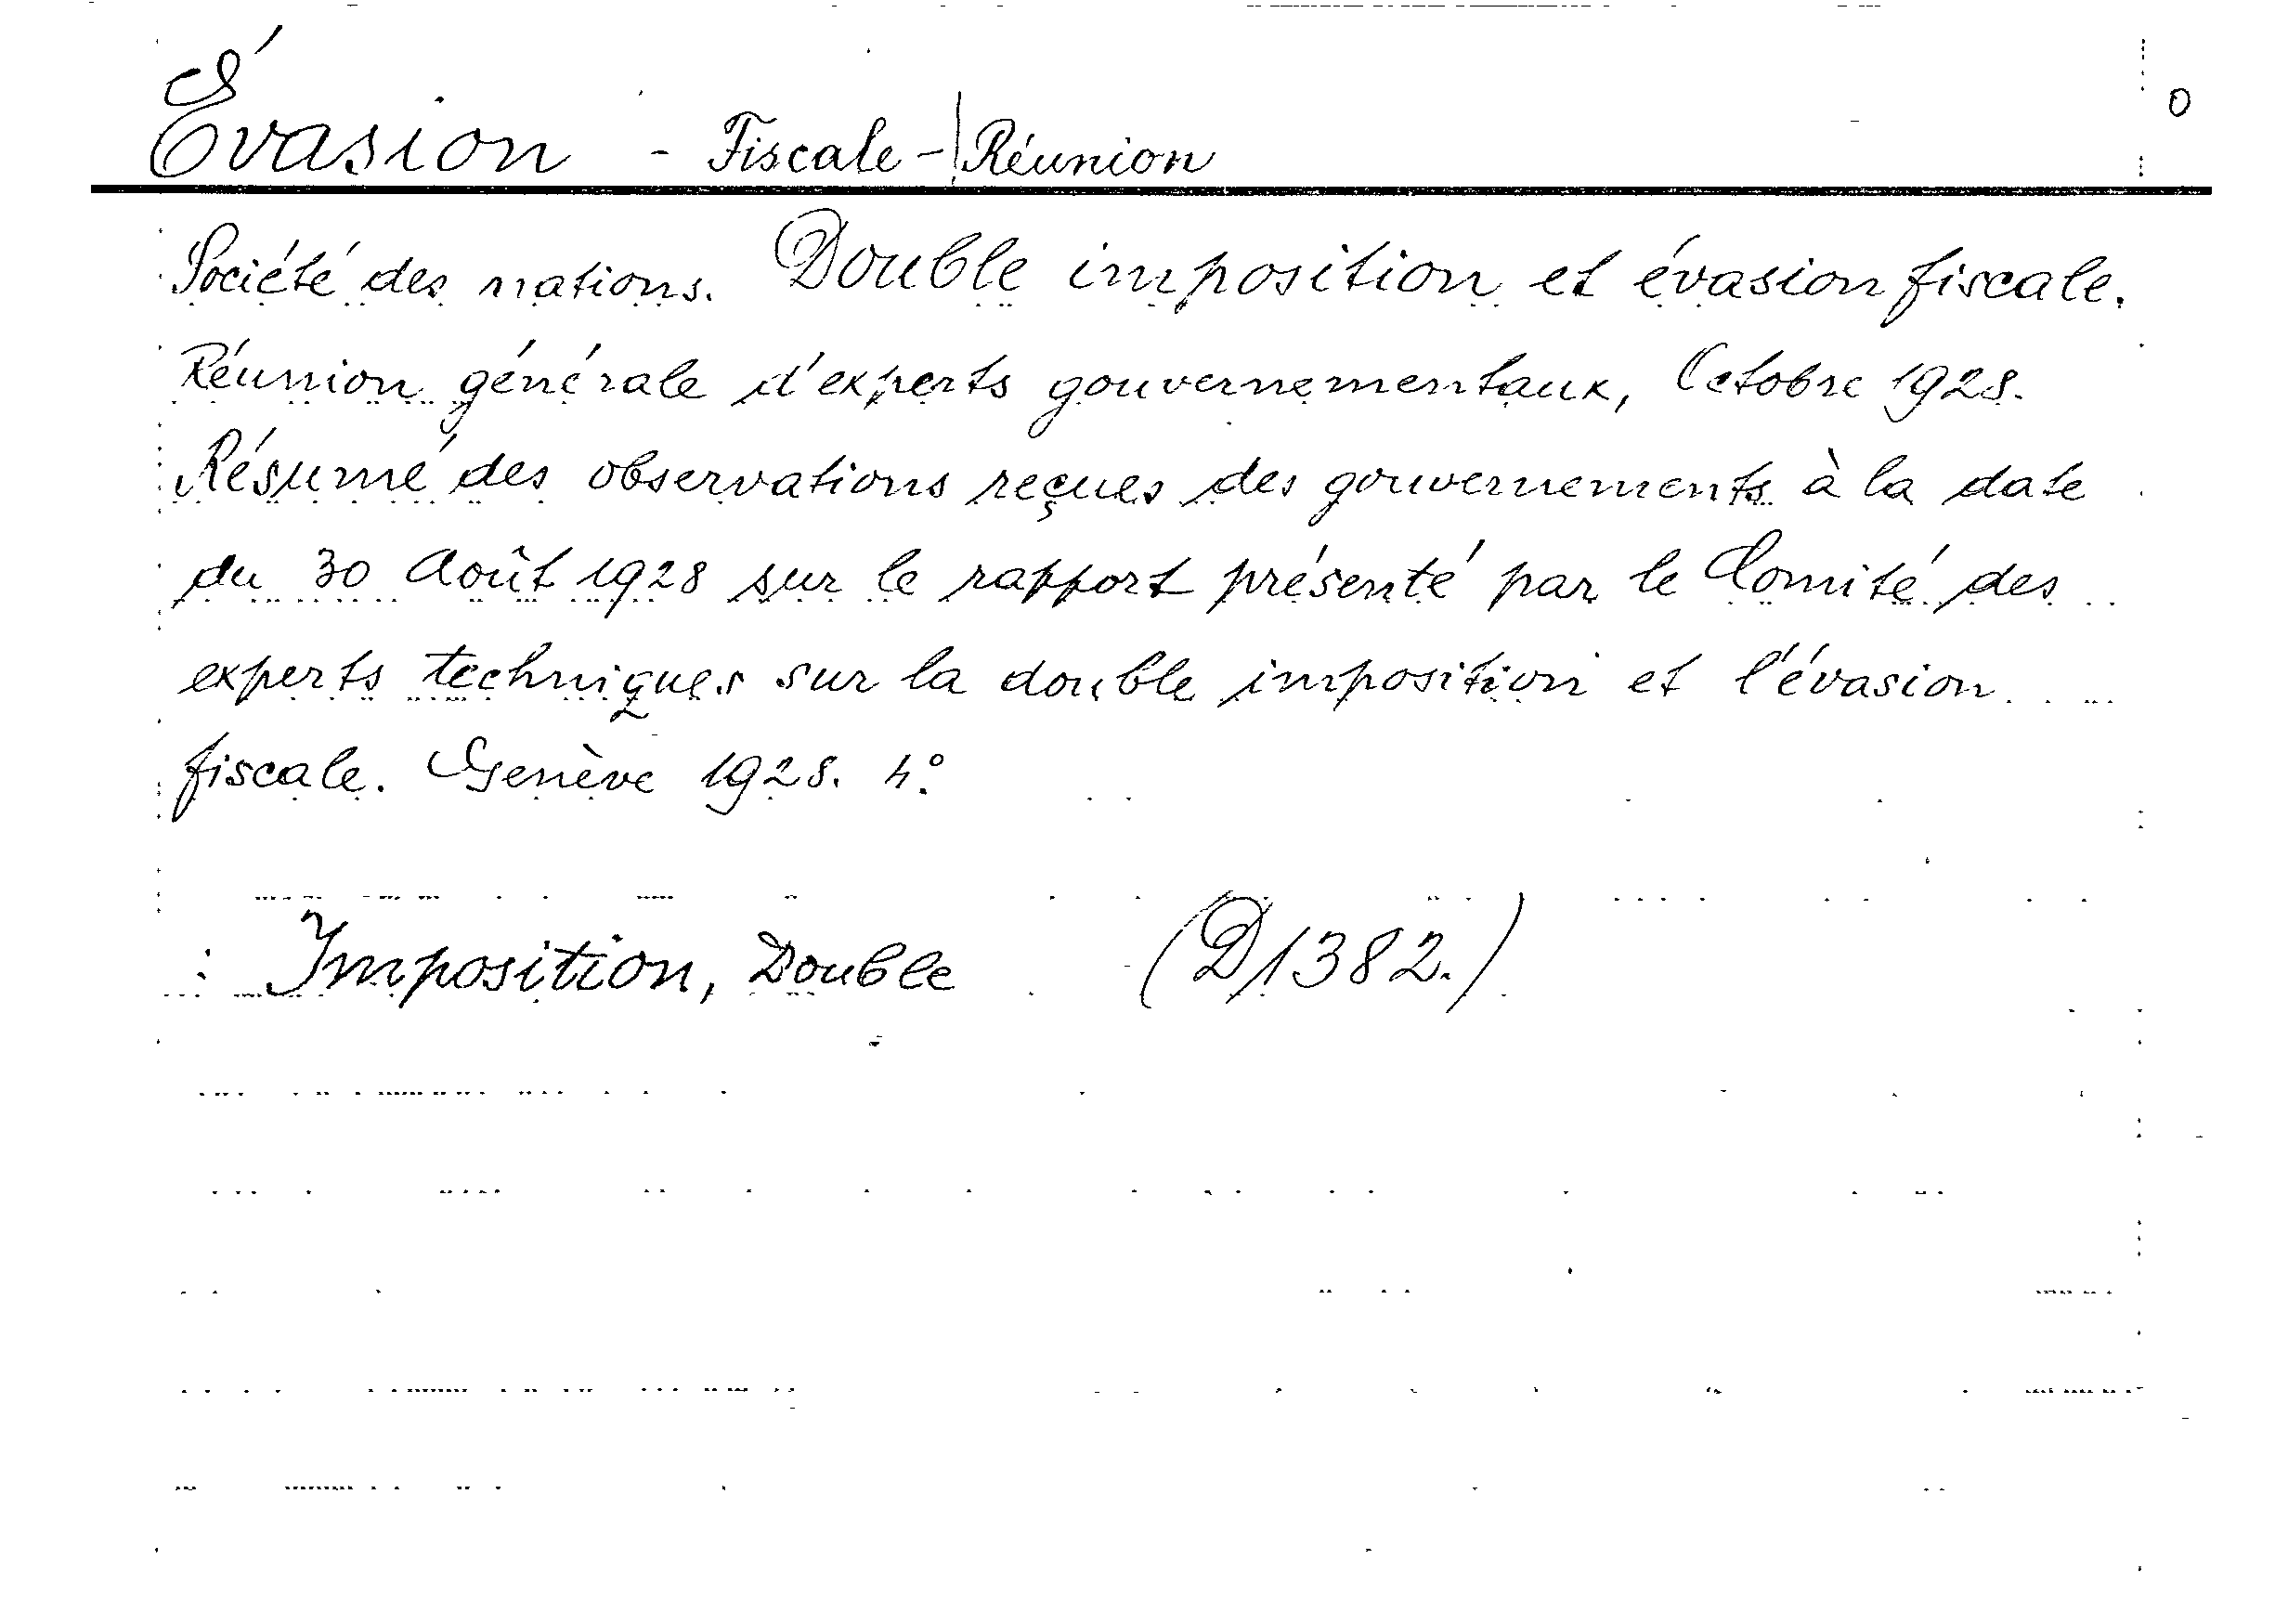 Évasion - Fiscale - | Réunion
O
Société des nations. Double imposition et évasion fiscale.
Réunion générale d'experts gouvernementaux, Octobre 1928.
Résumé des observations reçues des gouvernements à la date
du 30 Août 1928 sur le rapport présenté par le Comité des
experts techniques sur la double imposition et l'évasion
fiscale. Genève 1928. 4°.
: Imposition, Double (D1382.)